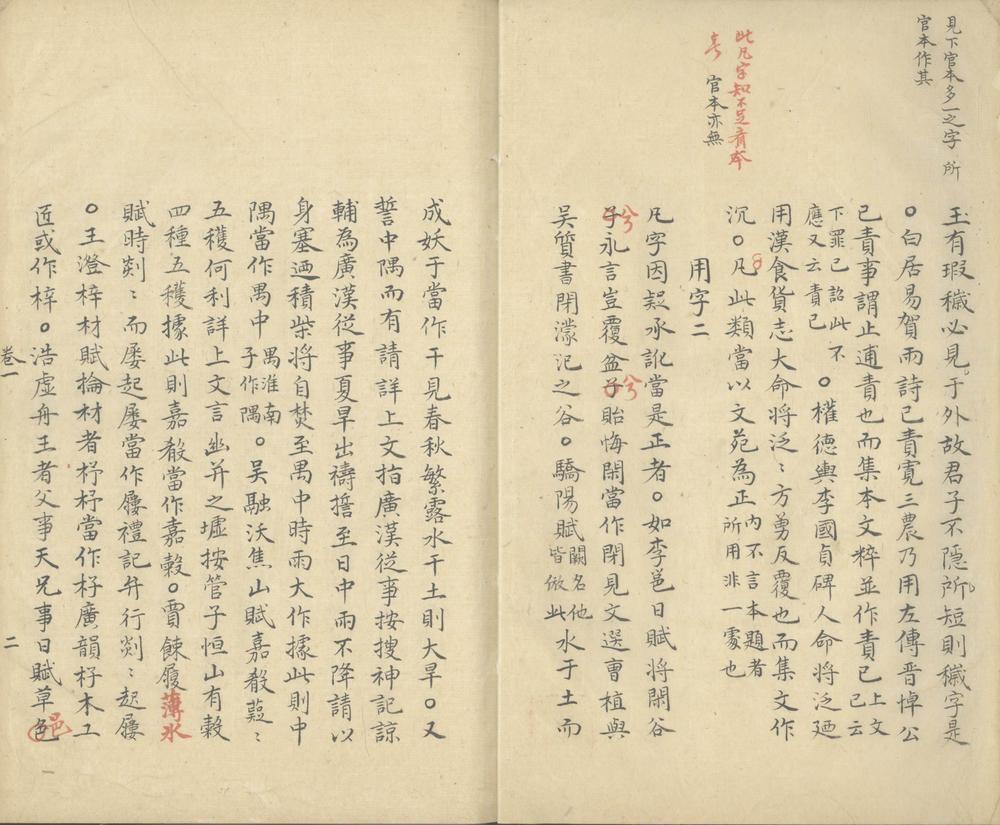 見下官本多一之字 所
官本作其
此凡字知不足齋本
官本亦無
玉有瑕穢必見于外故君子不隱所短則穢字是
○白居易賀雨詩已責寬三農乃用左傳晉悼公
已責事謂止逋責也而集本文粹並作責已上文已云
下罪已詔此不應又云責已○權德輿李國貞碑人命將泛廼
用漢食貨志大命將泛泛方勇反覆也而集文作
沉○凡此類當以文苑為正內不言本題者所用非一處也
用字二
凡字因疑承訛當是正者○如李邕日賦将閑谷
子兮永言豈覆盆子兮貽悔閑當作閉見文選曹植與
吳質書閉濛汜之谷○驕陽賦闕名他皆倣此水于土而
成妖于當作干見春秋繁露水干土則大旱○又
誓中隅而有請詳上文指廣漢從事按搜神記諒
輔為廣漢從事夏旱出禱誓至日中雨不降請以
身塞迺積柴将自焚至禺中時雨大作據此則中
隅當作禺中禺淮南子作隅○吳融沃焦山賦嘉穀藲〻
五穫何利詳上文言幽并之墟按管子恒山有穀
四種五穫據此則嘉穀當作嘉穀○賈餗履薄氷
賦時剡〻而屡起屡當作屨禮記弁行剡〻起屨
○王澄梓材賦掄材者杍杍當作杍廣韻杍木工
匠或作梓○浩虛舟王者父事天兄事日賦草色邑
卷一
二